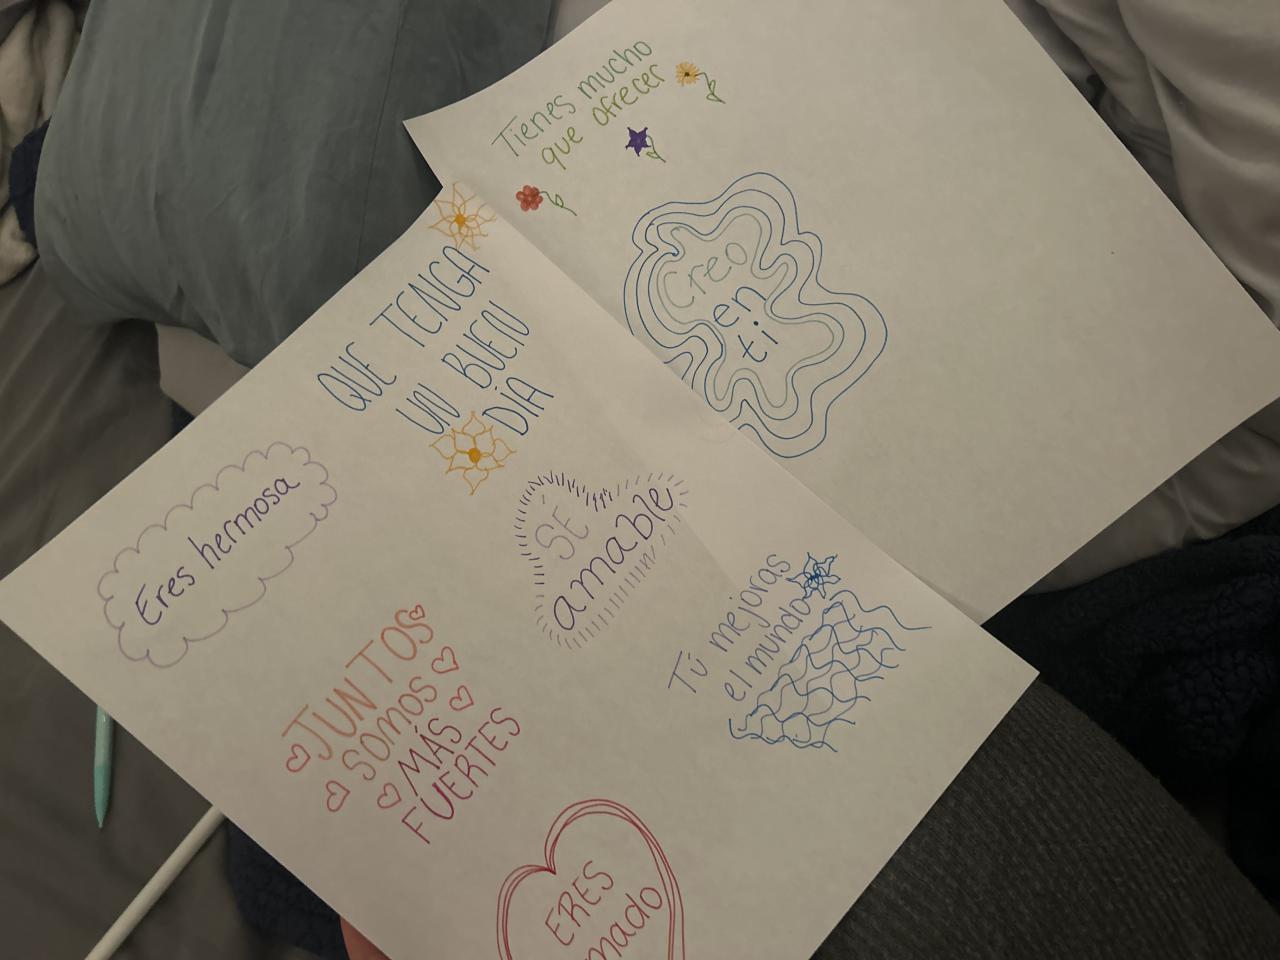 Tienes mucho
que ofrecer
Creo
en
ti
QUE TENGA
UN BUEN
DÍA
Eres hermosa
SE
amable
Tú mejoras
el mundo
JUNTOS
SOMOS
MÁS
FUERTES
ERES